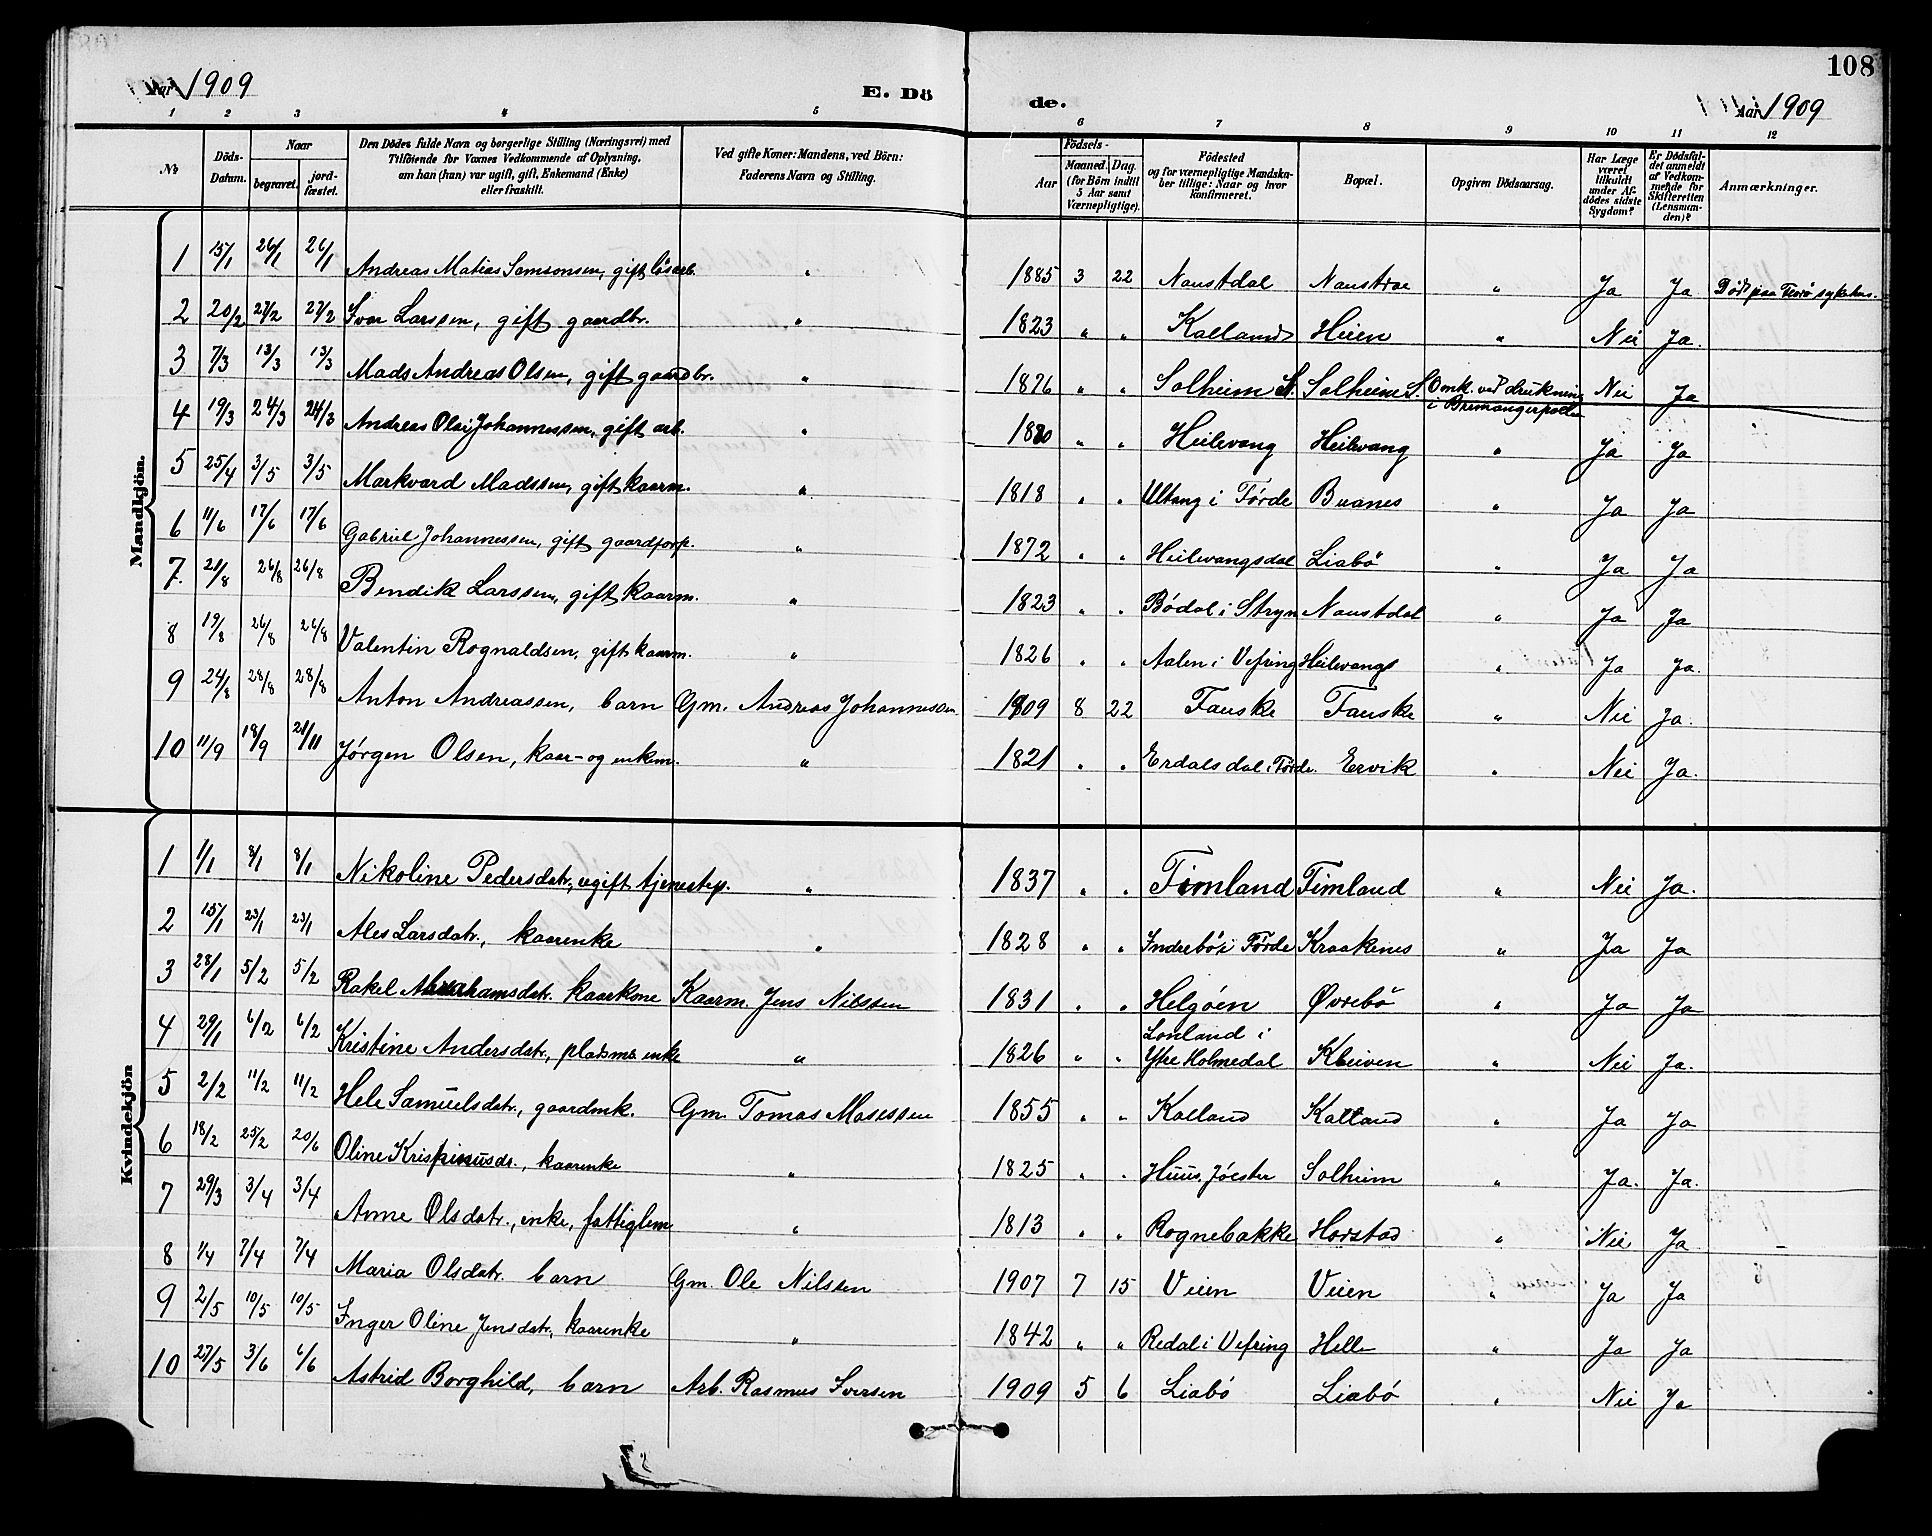 108
Aar 1909 E. Dö de. Aar 1909
1 2 3 4 5 6 7 8 9 10 11 12
No
Döds-Datum.
Naar
begravet.
jord-fæstet.
Den Dödes fulde Navn og borgerlige Stilling (Næringsvei) med
Tilföiende for Voxnes Vedkommende af Oplysning,
om han (hun) var ugift, gift, Enkemand (Enke)
eller fraskilt.
Ved gifte Koner: Mandens, ved Börn:
Faderens Navn og Stilling.
Födsels-
Aar
Maaned. Dag.
(for Börn indtil
5 Aar samt
Værnepligtige).
Födested
og for værnepligtige Mandska-
ber tillige: Naar og hvor
konfirmeret.
Bopæl.
Opgiven Dödsaarsag.
Har Læge
været
tilkaldt
under Af-
dödes sidste
Sygdom?
Er Dödsfal-
det anmeldt
af Vedkom-
mende for
Skifteretten
(Lensman-
den)?
Anmærkninger.
Mandkjön.
1 15/1 26/1 26/1 Andreas Matias Samsonsen, gift løsarb. " 1885 3 22 Naustdal Naustdal " Ja Ja Død paa Florø sykehus.
2 20/2 27/2 27/2 Ivar Larssen, gift gaardbr. " 1823 " " Kalland Heien " Nei Ja.
3 7/3 13/3 13/3 Mads Andreas Olsen, gift gaardbr. " 1876 " " Solheim S. Solheim S. Omk. ved drukning i Bremangerpollen Nei Ja
4 19/3 24/3 24/3 Andreas Olai Johannessen, gift arb. " 1880 " " Heilevang Heilevang " Ja Ja
5 25/4 3/5 3/5 Markvard Madssen, gift kaarm. " 1818 " " Ultang i Førde Buanes " Ja Ja
6 11/6 17/6 17/6 Gabriel Johannessen, gift gaardforp. " 1872 " " Heilevangsdal Liabö " Ja Ja
7. 21/8 26/8 26/8 Bendik Larssen, gift kaarm. " 1823 " " Bödal i Stryn Naustdal " Ja Ja
8 19/8 26/8 26/8 Valentin Rognaldsen, gift kaarm. " 1826 " " Aalen i Vefring Heilevang " Ja Ja.
9 24/8 28/8 28/8 Anton Andreassen, barn Gm. Andreas Johannessen 1909 8 22 Fauske Fauske " Nei Ja.
10 11/9 18/9 21/11 Jørgen Olsen, kaar- og enkem. " 1821 " " Erdalsdal i Førde. Ervik " Nei Ja.
Kvindekjön
1 1/1 8/1 8/1 Nikoline Pedersdatr., ugift tjenestep. " 1837 " " Timland Timland " Nei Ja.
2 15/1 23/1 23/1 Ales Larsdatr., kaarenke " 1828 " " Indrebö i Førde Kraakenes " Ja Ja
3 28/1 5/2 5/2 Rakel Abrahamsdatr. kaarkone Kaarm. Jens Nilssen 1831 " " Helgöen Øvrebö " Ja Ja
4 29/1 6/2 6/2 Kristine Andersdatr., pladsms enke " 1826 " " Lonland i Ytre Holmedal Kleiven " Nei Ja.
5 2/2 11/2 11/2 Hele Samuelsdatr., gaardmk. Gm. Tomas Mosessen 1855 " " Kalland Kalland " Ja Ja
6 18/2 25/2 20/6 Oline Krispinusdr., kaarenke " 1825 " " Huus, Jölster Solheim " Ja. Ja.
7 29/3 3/4 3/4 Anne Olsdatr., enke, fattiglem " 1813 " " Rognebakke Horstad " Nei Ja
8 1/4 7/4 7/4 Maria Olsdatr. barn Gm. Ole Nilssen 1907 7 15 Veien Veien " Ja Ja
9 2/5 10/5 10/5 Inger Oline Jensdatr., kaarenke " 1842 " " Redal i Vefring Helle " Ja Ja
10 27/5 3/6 6/6 Astrid Borghild, barn Arb. Rasmus Iversen 1909 5 6 Liabö Liabö " Nei Ja